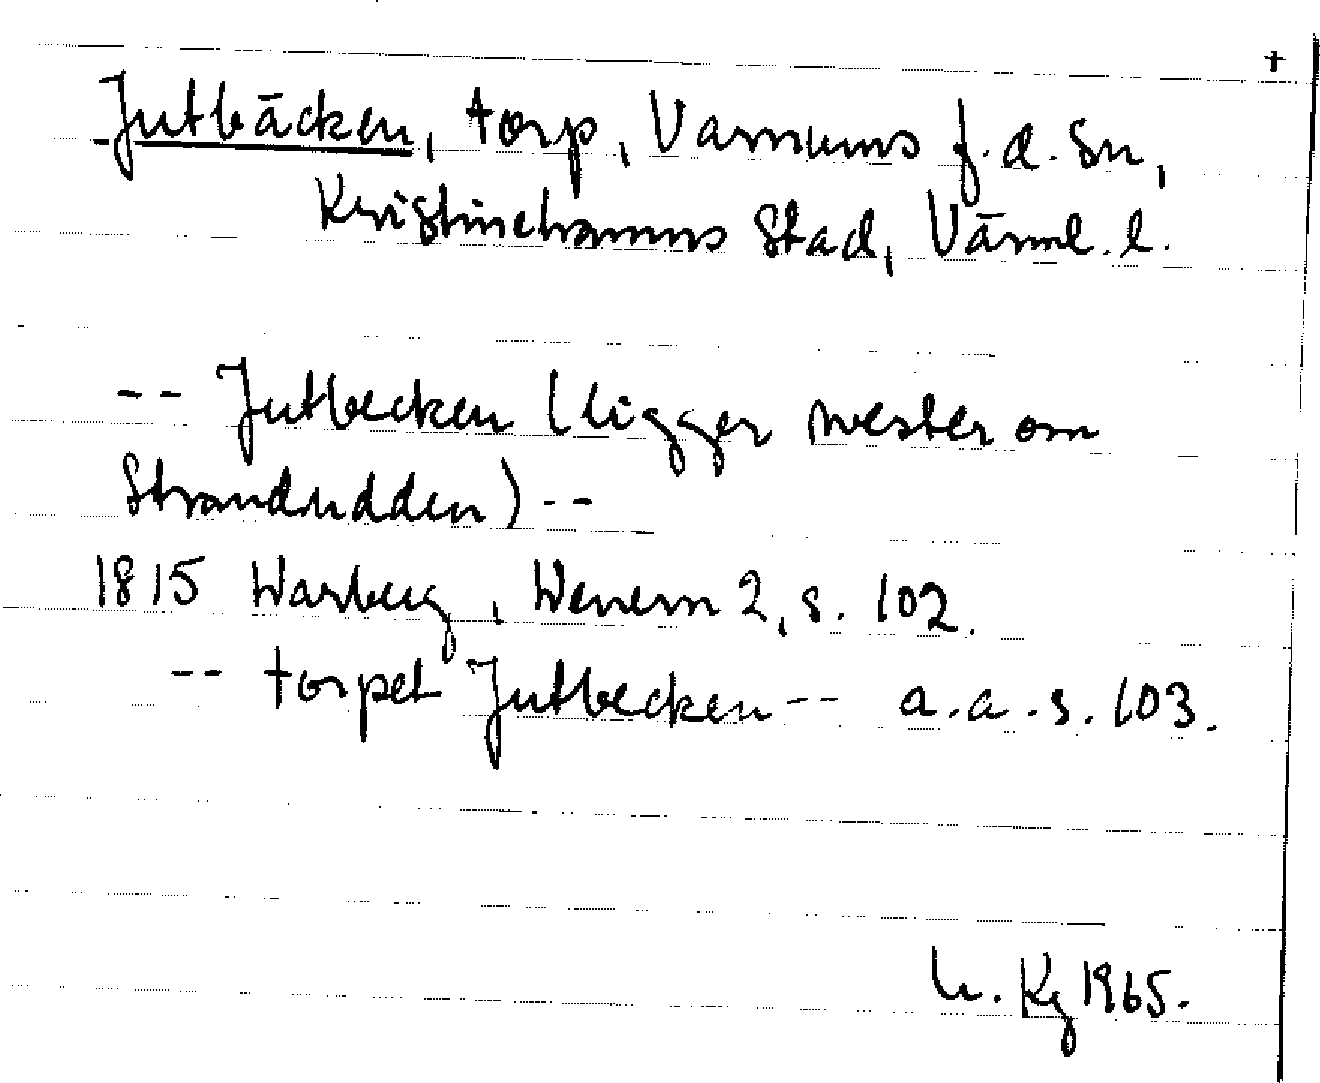 +
Jutbäcken, torp, Varnums f.d. sn,
Kristinehamns stad, Värml. l.
-- Jutbecken (ligger wester om
Strandudden) --
1815 Warberg, Wenern 2, s. 102.
-- torpet Jutbecken -- a.a. s. 103.
Kg 1965.